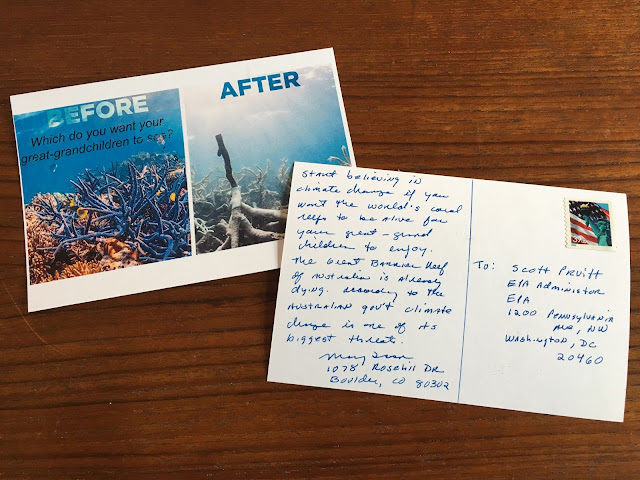 BEFORE
Which do you want your
great-grandchildren to see?
AFTER
Start believing in
climate change if you
want the world's coral
reefs to be alive for
your great-grand
children to enjoy.
The Great Barrier Reef
of Australia is already
dying. According to the
Australian gov't climate
change is one of its
biggest threats.
Mary
1078 Rosehill DR
Boulder, CO 80302
To: Scott Pruitt
EPA Administor
EPA
1200 Pennsylvania
Ave, NW
Washington, DC
20460